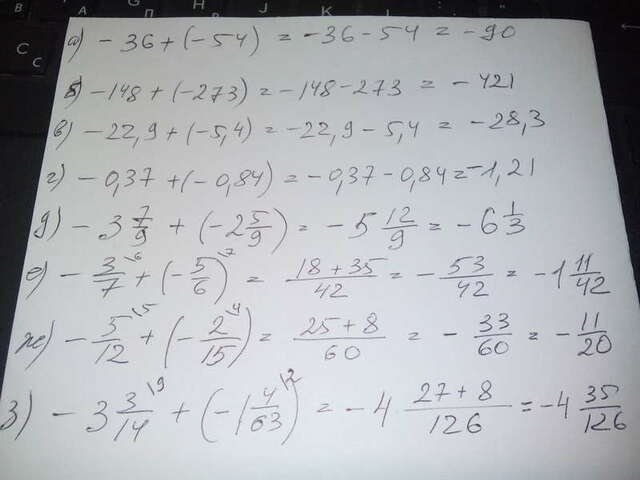 а) - 36 + (-54) = -36 - 54 = -90
б) -148 + (-273) = -148 - 273 = -421
в) -22,9 + (-5,4) = -22,9 - 5,4 = -28,3
г) -0,37 + (-0,84) = -0,37 - 0,84 = -1,21
д) -3 7/9 + (-2 5/9) = -5 12/9 = -6 1/3
е) -3/7 \6 + (-5/6) \7 = 18+35/42 = -53/42 = -1 11/42
ж) -5/12 \5 + (-2/15 \4) = 25+8/60 = -33/60 = -11/20
з) -3 3/14 \9 + (-1 4/63 \2) = -4 27+8/126 = -4 35/126